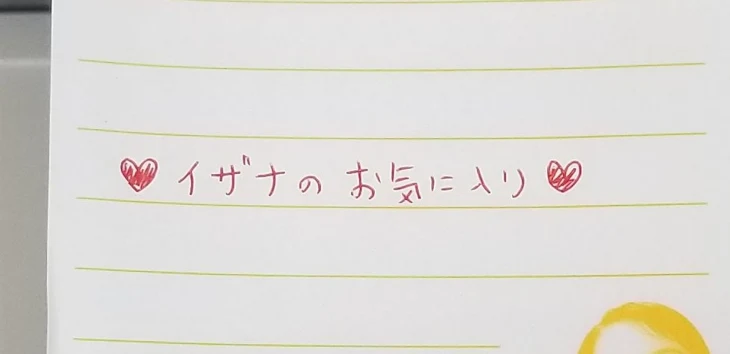 ♥イザナの お気に入り♥